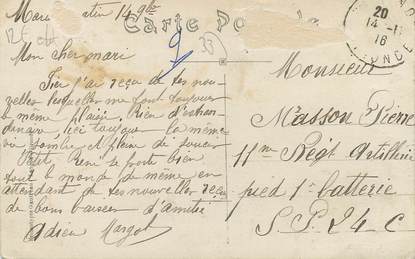 Mardi matin 14 9bre
Carte Postale
20
14 -11
16
Mon cher mari
Hier j'ai reçu de tes nou
velles lesquelles me font toujours
le même plaisir. Rien d'extraor
dinaire, ici toujours la même
vie sombre et pleine de soucis
Petite René se porte bien
tout le monde de même en
attendant de tes nouvelles reçois
de bons baisers d'amitié
adieu Margot
Monsieur
Masson Pierre
11me Régt Artillerie
pied 1e batterie
S. P. 24 - C